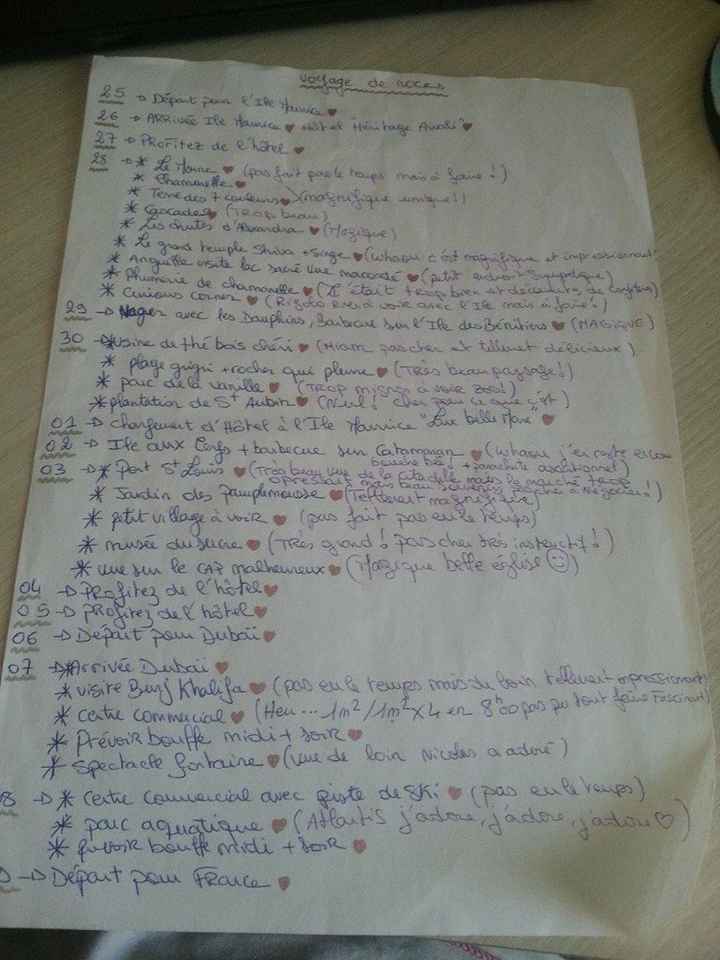 Voyage de noces
25 → Départ pour l'Ile Maurice ❤
26 → ARRIVÉE Ile Maurice ❤ hôtel "Héritage Awali" ❤
27 → Profitez de l'hôtel ❤
28 → * Le Morne ❤ (pas fait pas le temps mais à faire !)
* Chamarelle ❤
* Terre des 7 couleurs ❤ (magnifique unique !!)
* Cascades ❤ (Trop beau)
* Les chutes d'Alexandra ❤ (Magique)
* Le grand temple Shiva + Singe ❤ (whaou c'est magnifique et impressionnant
* Anguille visite lac sacré vue ❤ (petit endroit sympathique)
* Rhumerie de chamarelle ❤ (Il était trop bien et découverte de)
* Curious corner ❤ (Rigolo rien à voir avec l'Ile mais à faire !)
29 → Nager avec les Dauphins, Barbecue sur l'Ile des Bénitiers ❤ (MAGIQUE)
30 → * usine de thé bois chéri ❤ (Miam pas cher et tellement délicieux)
* plage grigri + rocher qui pleure ❤ (Très beau paysage !)
* parc de la vanille ❤ (Trop mignon à voir zoo !)
* plantation de St Aubin ❤ (Nul ! cher pour ce que c'est)
01 → Changement d'hôtel à l'Ile Maurice "Long Beach" ❤
02 → Ile aux Cerfs + barbecue sur Catamaran ❤ (whaou j'en reste encore
bouche bée ! + parachute ascensionnel)
03 → * Port St Louis ❤ (Trop beau vue de la Citadelle mais le marché trop
oppressant mais beau souvenirs penser à Négocier !)
* Jardin des Pamplemousse ❤ (Tellement magnifique)
* petit village à voir ❤ (pas fait pas eu le temps)
* musée du sucre ❤ (Très grand ! pas cher très instructif !)
* vue sur le CAP malheureux ❤ (Magique belle église ☺)
04 → Profitez de l'hôtel ❤
05 → profitez de l'hôtel ❤
06 → Départ pour Dubaï ❤
07 → * Arrivée Dubaï ❤
* visite Burj Khalifa ❤ (pas eu le temps mais du loin tellement impressionnant)
* centre commercial ❤ (Heu... 1m²/1m² x 4 en 8h00 pas pu tout faire Fascinant)
* Prévoir bouffe midi + soir ❤
* Spectacle fontaine ❤ (vue de loin Nicolas a adoré)
08 → * centre commercial avec piste de ski ❤ (pas eu le temps)
* parc aquatique ❤ (Atlantis j'adore, j'adore, j'adore ♡)
* prévoir bouffe midi + soir ❤
→ Départ pour France ❤